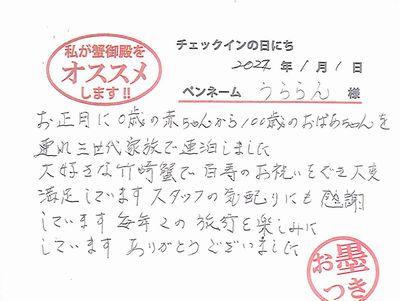 私が蟹御殿を
オススメ
します!!
チェックインの日にち
2024年1月1日
ペンネーム うららん 様
お正月に0歳の赤ちゃんから100歳のおばあちゃんを
連れ三世代家族で連泊しました
大好きな竹崎蟹で百寿のお祝いもでき大変
満足しています スタッフの気配りにも感謝
しています 毎年この旅行を楽しみに
しています ありがとうございました
お墨
つき